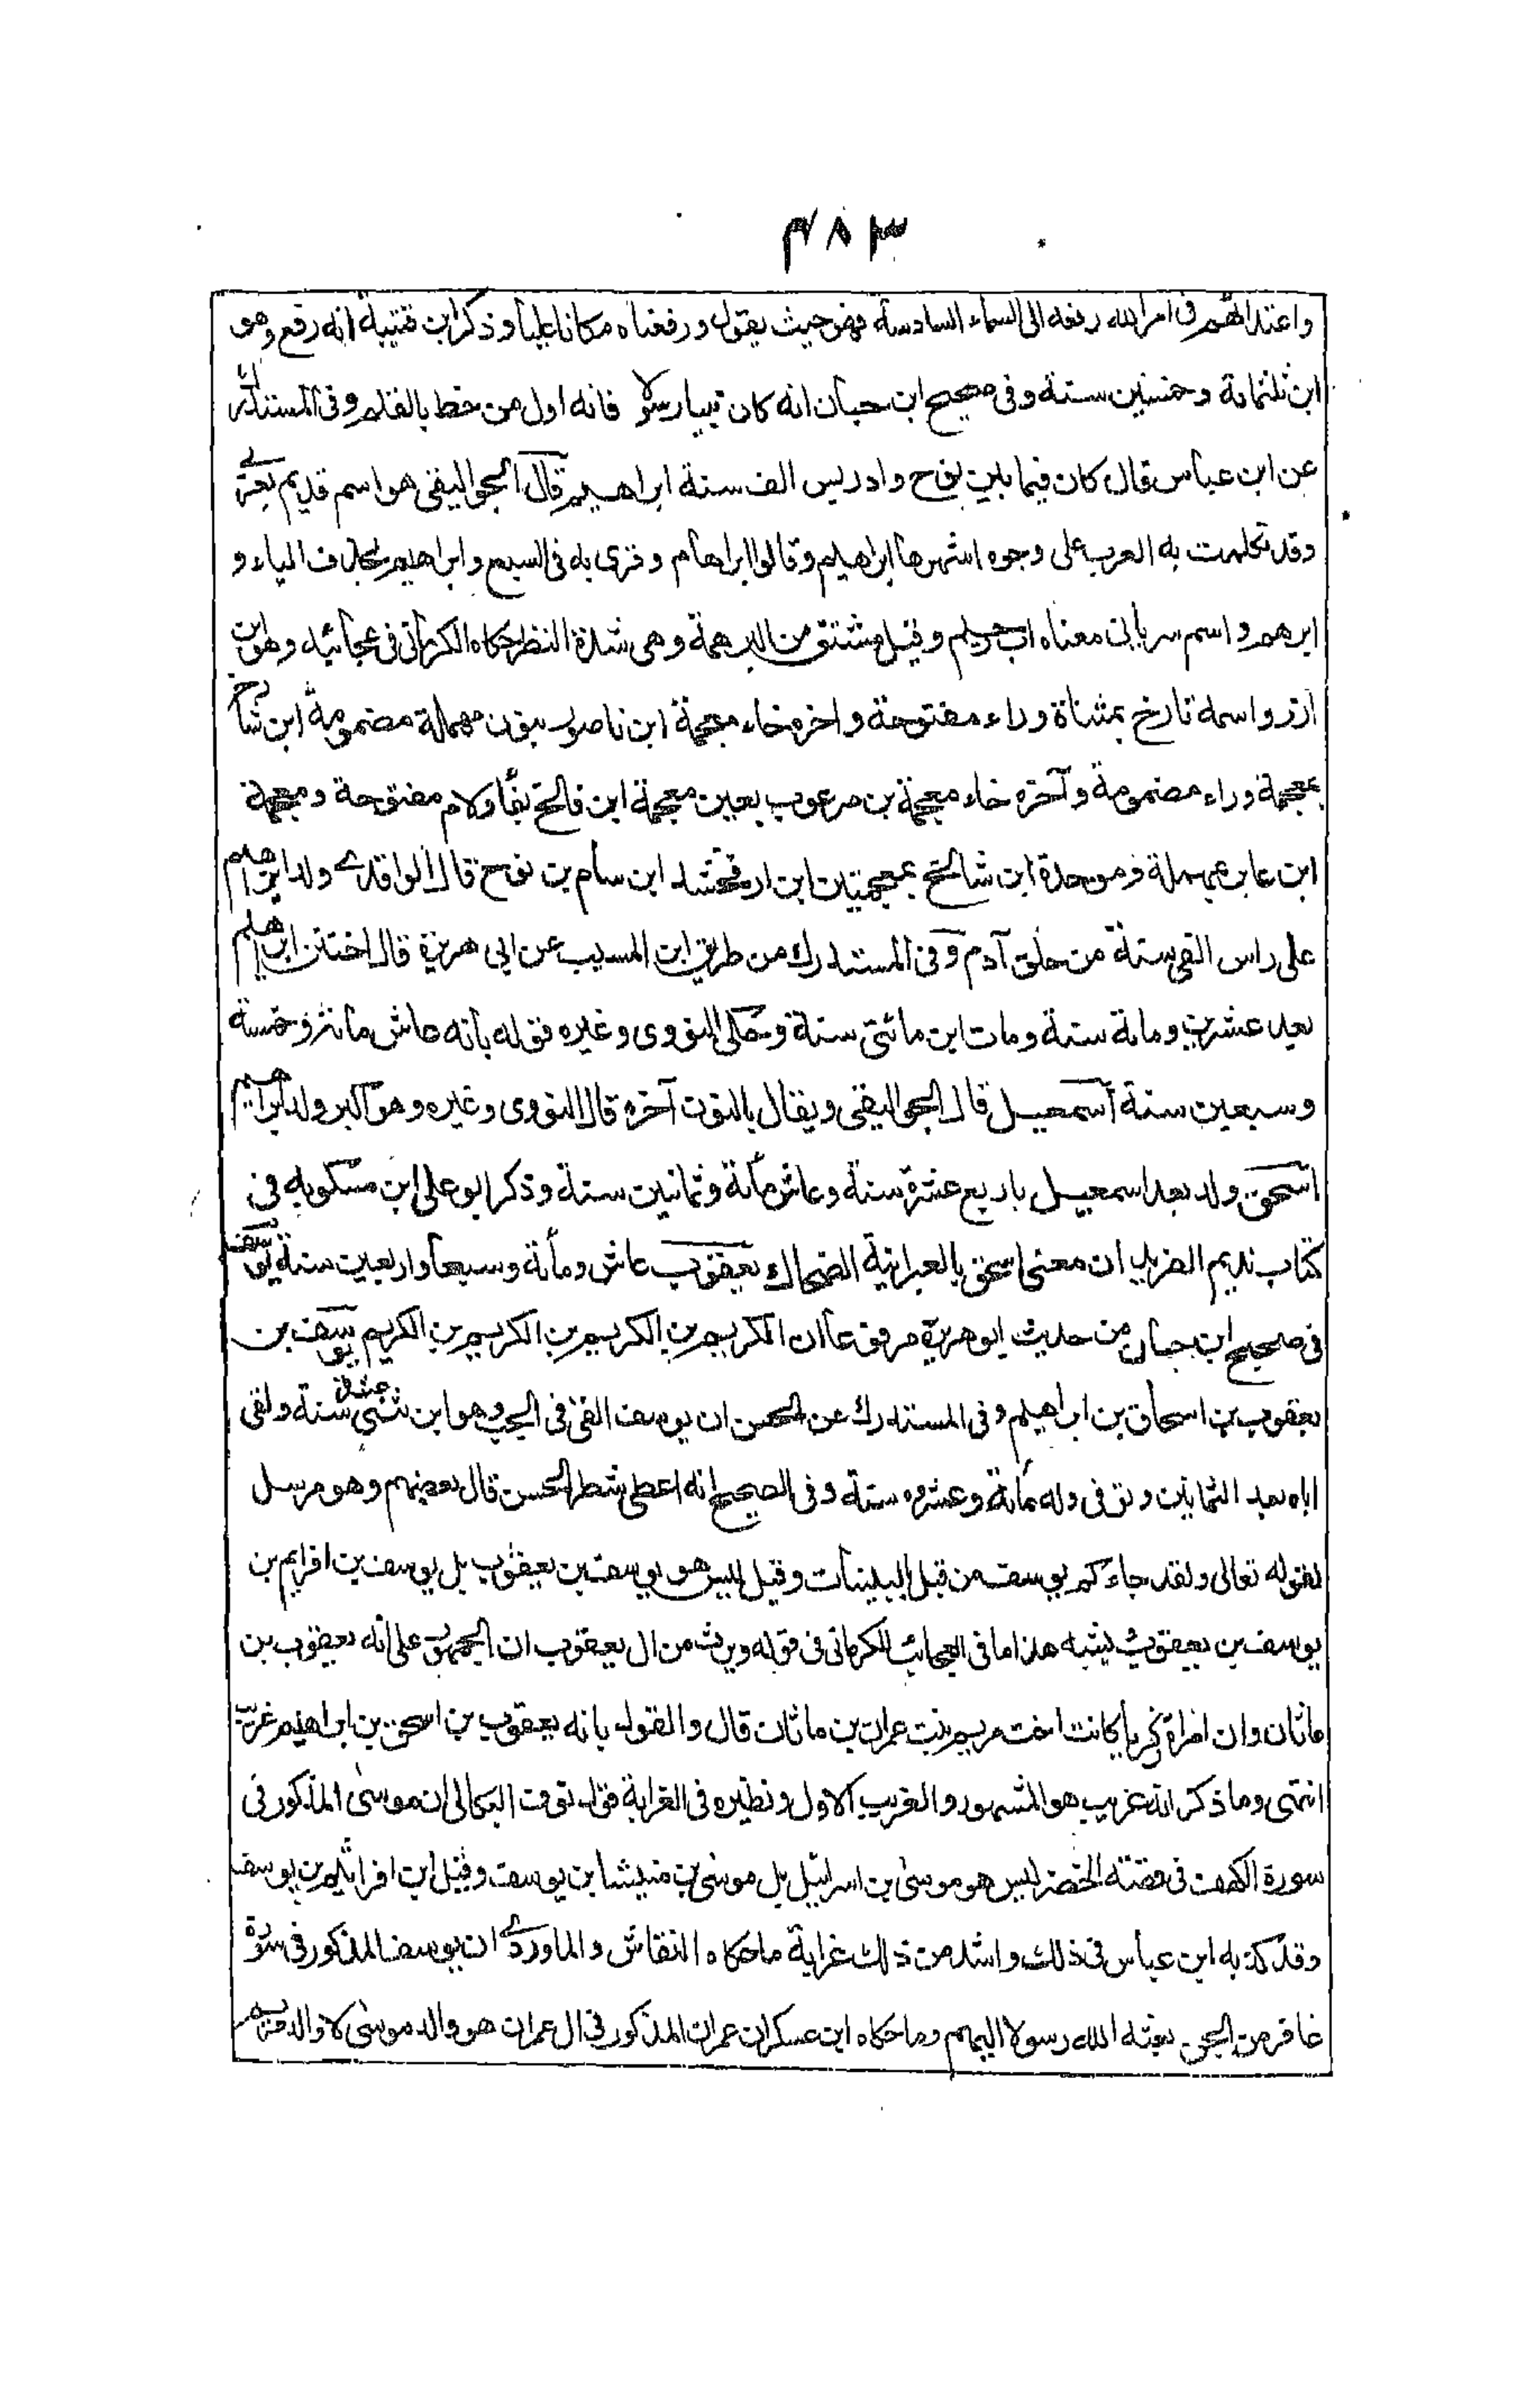 ٤٨٣
واعتد الهم فى امر الله رفعه الى السماء السادسة فهو حيث يقول ورفعناه مكانا عليا وذكر ابن قتيبة انه رفع وهو
ابن ثلثمائة وخمسين سنة وفى صحيح ابن حبان انه كان نبيا رسولا فانه اول من خط بالقلم وفى المستدرك
عن ابن عباس قال كان فيما بين نوح وادريس الف سنة ابراهيم قال الجواليقى هو اسم قديم ليس بعربے
وقد تكلمت به العرب على وجوه اشهرها ابراهيم وقالوا ابراهام وقرى به فى السبع وابراهيم بحذف الياء و
ابرهم و اسم سريانى معناه اب رحيم وقيل مشتق من البرهمة وهى شدة النظر حكاه الكرمانى فى عجائبه وهو ابن
ازر واسمه تارخ بمثناة وراء مفتوحة واخره خاء معجمة ابن ناحور بنون مهملة مضمومة ابن شارخ
بمعجمة وراء مضمومة وآخره خاء معجمة بن مرعوب بعين معجمة ابن فالخ بفاء ولام مفتوحة ومعجمة
ابن عابر بمهملة وموحدة ابن شالخ بمعجمتين ابن ارفخشد ابن سام بن نوح قال الواقدے ولد ابراهيم
على راس الفى سنة من خلق آدم وفى المستدرك من طريق ابن المسيب عن ابى هريرة قال اختتن ابراهيم
بعد عشرين ومائة سنة ومات ابن مائتى سنة وحكى النووى وغيره قوله بانه عاش مائة وخمسة
وسبعين سنة اسمعيل قال الجواليقى ويقال بالنون آخره قال النووى وغيره وهو اكبر ولد ابراهيم
اسحق ولد بعد اسمعيل باربع عشرة سنة وعاش مائة وثمانين سنة وذكر ابو على ابن مسكويه فى
كتاب نديم الفريد ان معنى اسحق بالعبرانية الضحاك يعقوب عاش ومائة وسبعا واربعين سنة يوسف
فى صحيح ابن حبان من حديث ابو هريرة مرفوعا ان الكريم بن الكريم بن الكريم بن الكريم يوسف بن
يعقوب بن اسحاق بن ابراهيم وفى المستدرك عن الحسن ان يوسف القى فى الجب وهو ابن ثنتى عشرة سنة ولقى
اباه بعد الثمانين وتوفى وله مائة وعشرون سنة وفى الصحيح انه اعطى شطر الحسن قال بعضهم وهو مرسل
لقوله تعالى ولقد جاءكم يوسف من قبل بالبينات وقيل ليس هو يوسف بن يعقوب بل يوسف بن افرايم بن
يوسف بن يعقوب يشبه هذا ما فى العجائب للكرمانى فى قوله ويرث من ال يعقوب ان الجمهور على انه يعقوب بن
ماثان وان امراة زكريا كانت اخت مريم بنت عمران بن ماثان قال والقول بانه يعقوب بن اسحق بن ابراهيم غريب
انتهى وما ذكر انه غريب هو المشهور والغريب الاول ونظيره فى الغرابة قول نوف البكالى ان موسى المذكور فى
سورة الكهف فى قصة الخضر ليس هو موسى بن اسرائيل بل موسى بن منيشا بن يوسف وقيل ابن افرائيم بن يوسف
وقد كذبه ابن عباس فى ذلك واشد من ذلك غرابة ما حكاه النقاش والماوردے ان يوسف المذكور فى سورة
غافر من الجن بعثه الله رسولا اليهم وما حكاه ابن عسكر ان عمران المذكور فى ال عمران هو والد موسى لا والد مريم